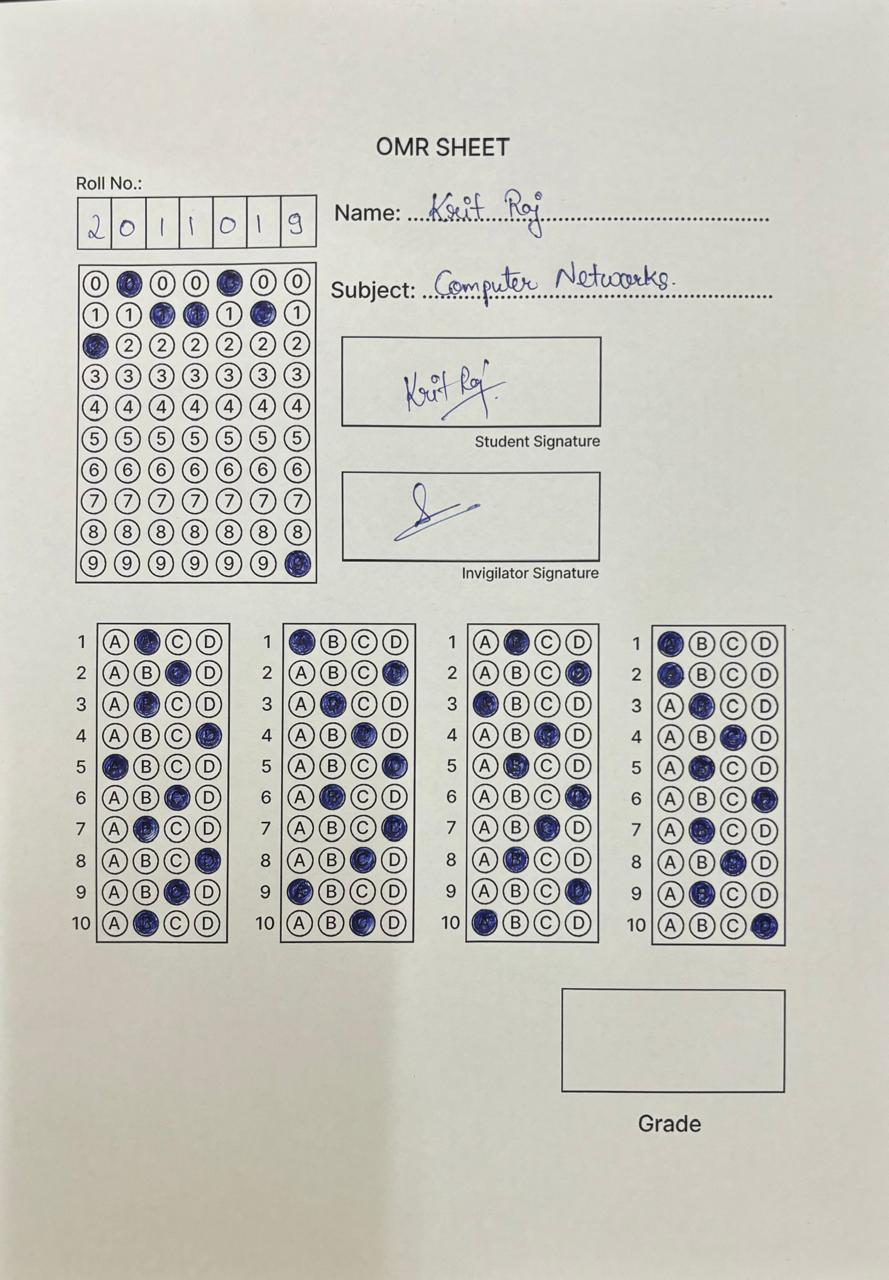 OMR SHEET
Roll No.:
2 0 1 1 0 1 9
Name: Krit Raj
Subject: Computer Networks.
0 0 0 0 0 0
1 1 1 1 1 1 1
2 2 2 2 2 2
3 3 3 3 3 3 3
4 4 4 4 4 4 4
5 5 5 5 5 5 5
6 6 6 6 6 6 6
7 7 7 7 7 7 7
8 8 8 8 8 8 8
9 9 9 9 9 9 9
Krit Raj
Student Signature
Invigilator Signature
1 A A C D
2 A B D
3 A B C D
4 A B C
5 A B C D
6 A B C D
7 A B C D
8 A B C D
9 A B C D
10 A B C D
1 A B C D
2 A B C
3 A C D
4 A B C D
5 A B C
6 A B C D
7 A B C D
8 A B C D
9 A B C D
10 A B C D
1 A C D
2 A B C D
3 A B C D
4 A B D
5 A B C D
6 A B C D
7 A B C D
8 A B C D
9 A B C D
10 A B C D
1 A B C D
2 B C D
3 A B C D
4 A B C D
5 A B C D
6 A B C D
7 A B C D
8 A B C D
9 A B C D
10 A B C D
Grade